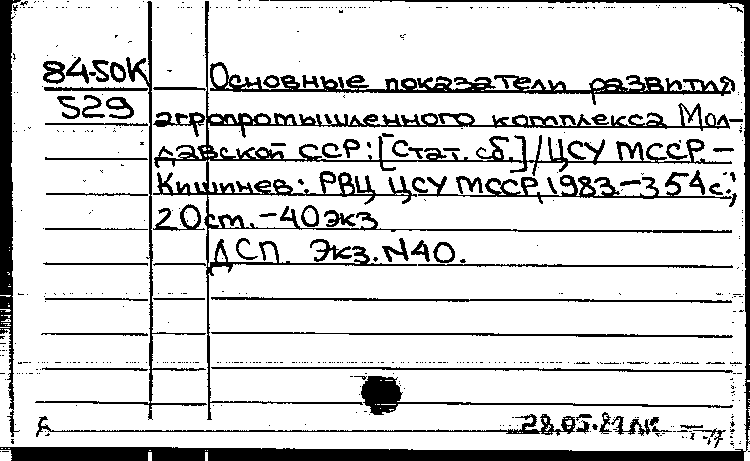 84-50К Основные показатели развития
529 агропромышленного комплекса Мол-
давской ССР: [Стат. сб.] / ЦСУ МССР. –
Кишинев: РВЦ ЦСУ МССР, 1983. – 354 с.;
20 см. – 40 экз
ДСП. Экз. N40.